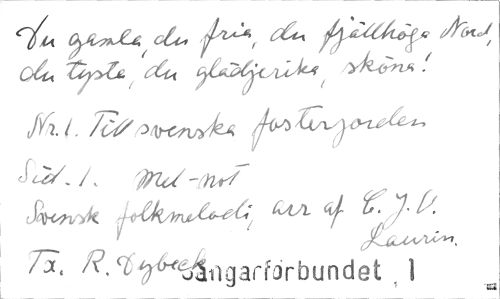 Du gamla, du fria, du fjällhöga Nord,
du tysta, du glädjerika, sköna!
Nr. 1. Till svenska fosterjorden
Sid. 1. Mel-not
Svensk folkmelodi, arr af C. J. V.
Laurin.
Tx. R. Dybeck
Sångarförbundet, 1